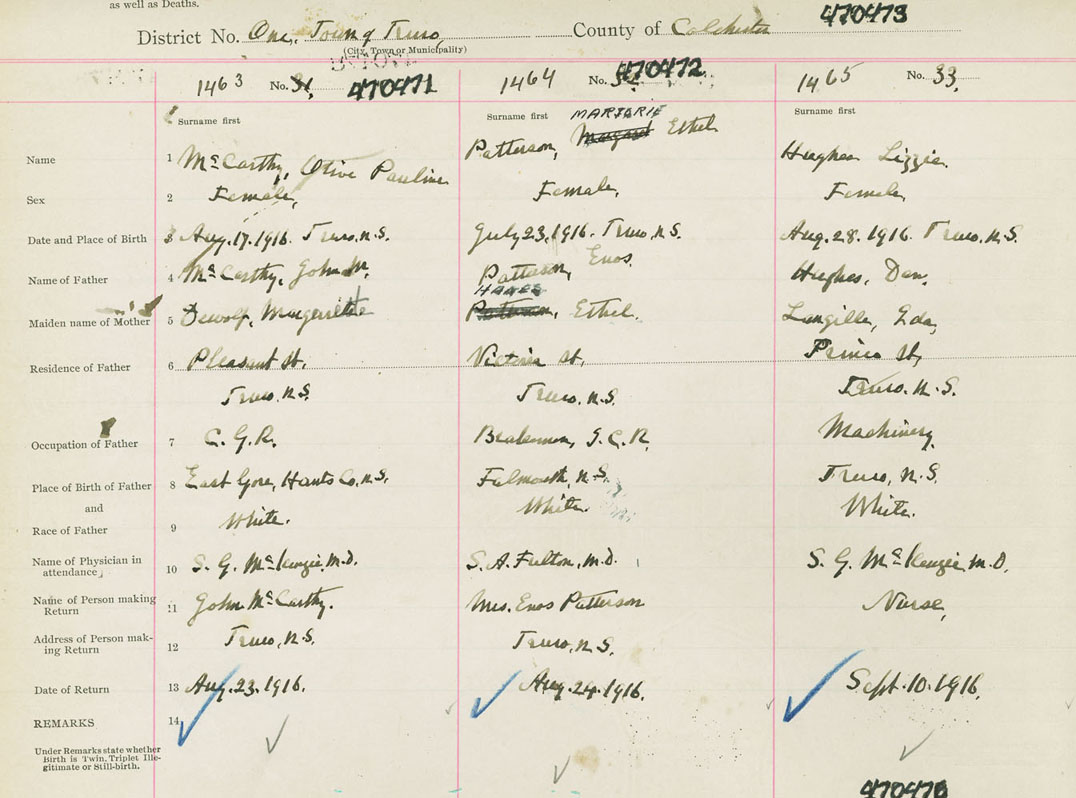 as well as Deaths.
District No. One, Town of Truro County of Colchester 470473
(City, Town or Municipality)
1463 No. 31, 470471 1464 No. 470472 1465 No. 33,
Surname first Surname first MARJORIE Surname first
Name 1 McCarthy, Olive Pauline Patterson, Margaret Ethel Hughes Lizzie.
Sex 2 Female, Female, Female,
Date and Place of Birth 3 Aug. 17. 1916. Truro, N.S. July 23, 1916. Truro, N.S. Aug. 28. 1916. Truro, N.S.
Name of Father 4 McCarthy, John M. Patterson, Enos. Hughes, Dan.
Maiden name of Mother 5 Dewolf, Margarette Patterson, Ethel. Langille, Ida,
Residence of Father 6 Pleasant St. Victoria St. Prince St,
Truro, N.S. Truro, N.S. Truro, N.S.
Occupation of Father 7 C. G. R. Brakeman, Machinery
Place of Birth of Father 8 East Gore, Hants Co, N.S. Falmouth, N.S. Truro, N.S.
and
Race of Father 9 White. White. White.
Name of Physician in
attendance 10 S. G. McKenzie, M.D. S. A. Fulton, M.D. S. G. McKenzie, M.D.
Name of Person making
Return 11 John McCarthy. Mrs. Enos Patterson Nurse,
Address of Person mak-
ing Return 12 Truro, N.S. Truro, N.S.
Date of Return 13 Aug. 23. 1916. Aug. 24. 1916. Sept. 10. 1916.
REMARKS 14
Under Remarks state whether
Birth is Twin, Triplet Ille-
gitimate or Still-birth.